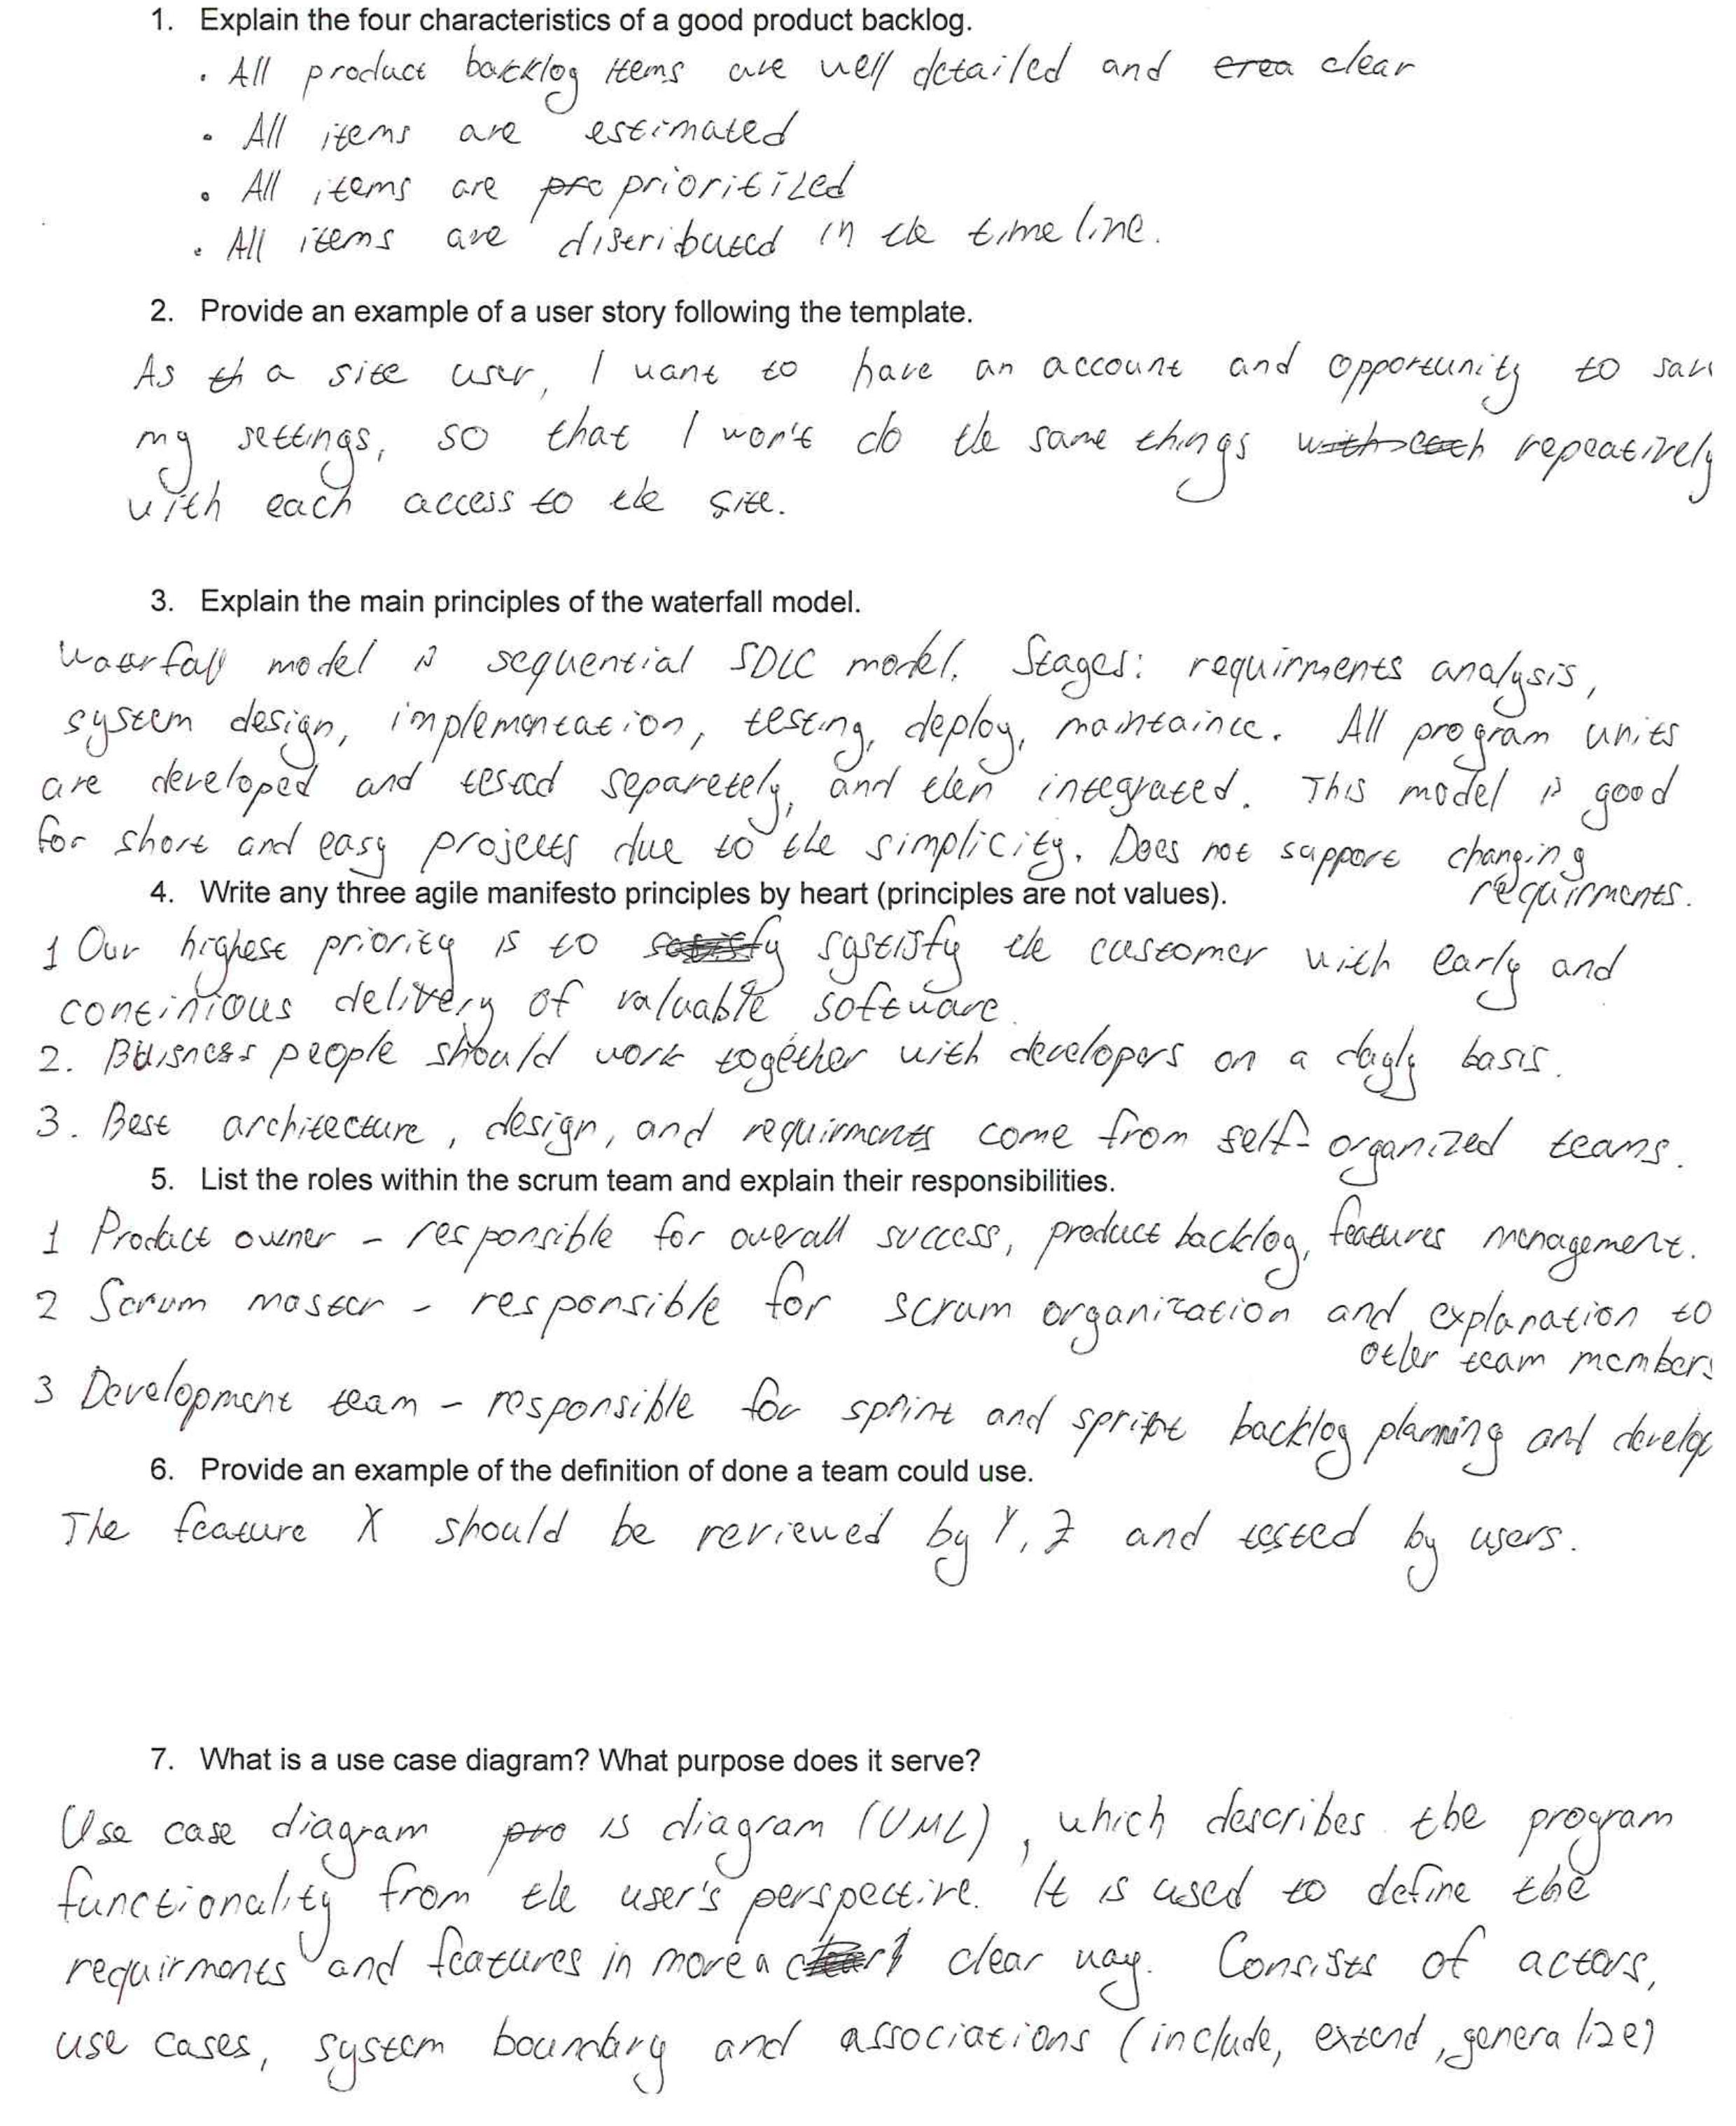 1. Explain the four characteristics of a good product backlog.
. All product backlog items are well detailed and crea clear
. All items are estimated
. All items are pro prioritized
. All items are distributed in the timeline.
2. Provide an example of a user story following the template.
As th a site user, I want to have an account and opportunity to sav
my settings, so that I won't do the same things with each repeatively
with each access to the site.
3. Explain the main principles of the waterfall model.
Waterfall model is sequential SDLC model. Stages: requirments analysis,
system design, implementation, testing, deploy, maintaince. All program units
are developed and tested separetely, and then integrated. This model is good
for short and easy projects due to the simplicity. Does not support changing
requirments.
4. Write any three agile manifesto principles by heart (principles are not values).
1 Our highest priority is to satisfy sastisfy the customer with early and
continious delivery of valuable software.
2. Buisness people should work together with developers on a dayly basis.
3. Best architecture, design, and requirments come from self-organized teams.
5. List the roles within the scrum team and explain their responsibilities.
1 Product owner - responsible for overall success, product backlog, features management.
2 Scrum master - responsible for scrum organization and explanation to
other team members
3 Development team - responsible for sprint and sprint backlog planning and develop
6. Provide an example of the definition of done a team could use.
The feature X should be reviewed by Y, Z and tested by users.
7. What is a use case diagram? What purpose does it serve?
Use case diagram pro is diagram (UML), which describes the program
functionality from the user's perspective. It is used to define the
requirments and features in more a clear way. Consists of actors,
use cases, system boundary and associations (include, extend, generalize)